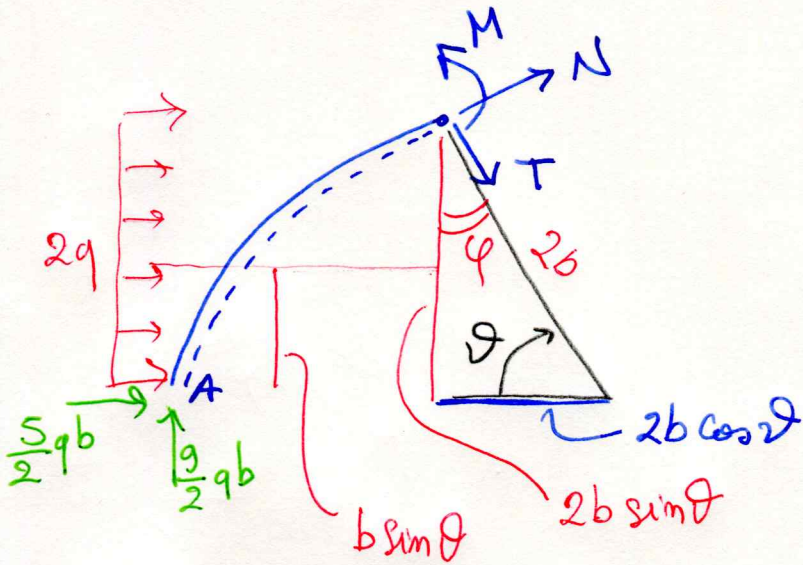 M
N
T
2q
φ
2b
ϑ
A
5/2 qb
9/2 qb
2b cosϑ
b sinθ
2b sinθ